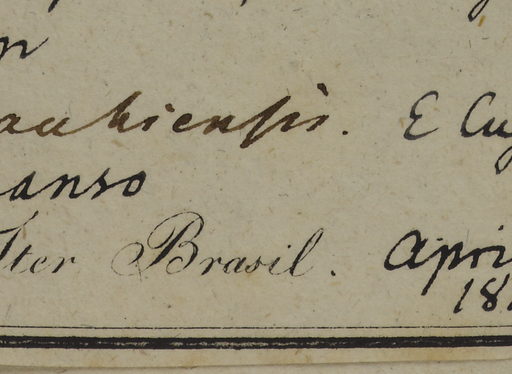 n
aukiensis. E Cuy
anso
Iter Brasil. Apri
18